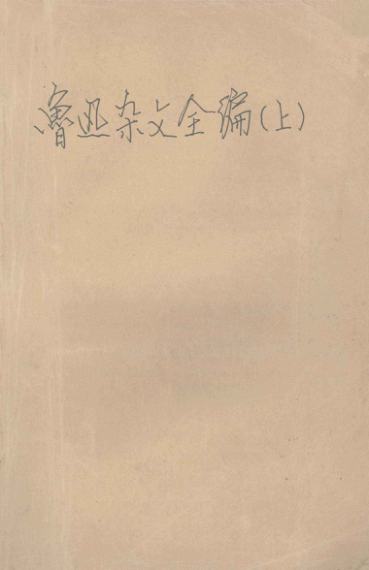 魯迅杂文全编(上)